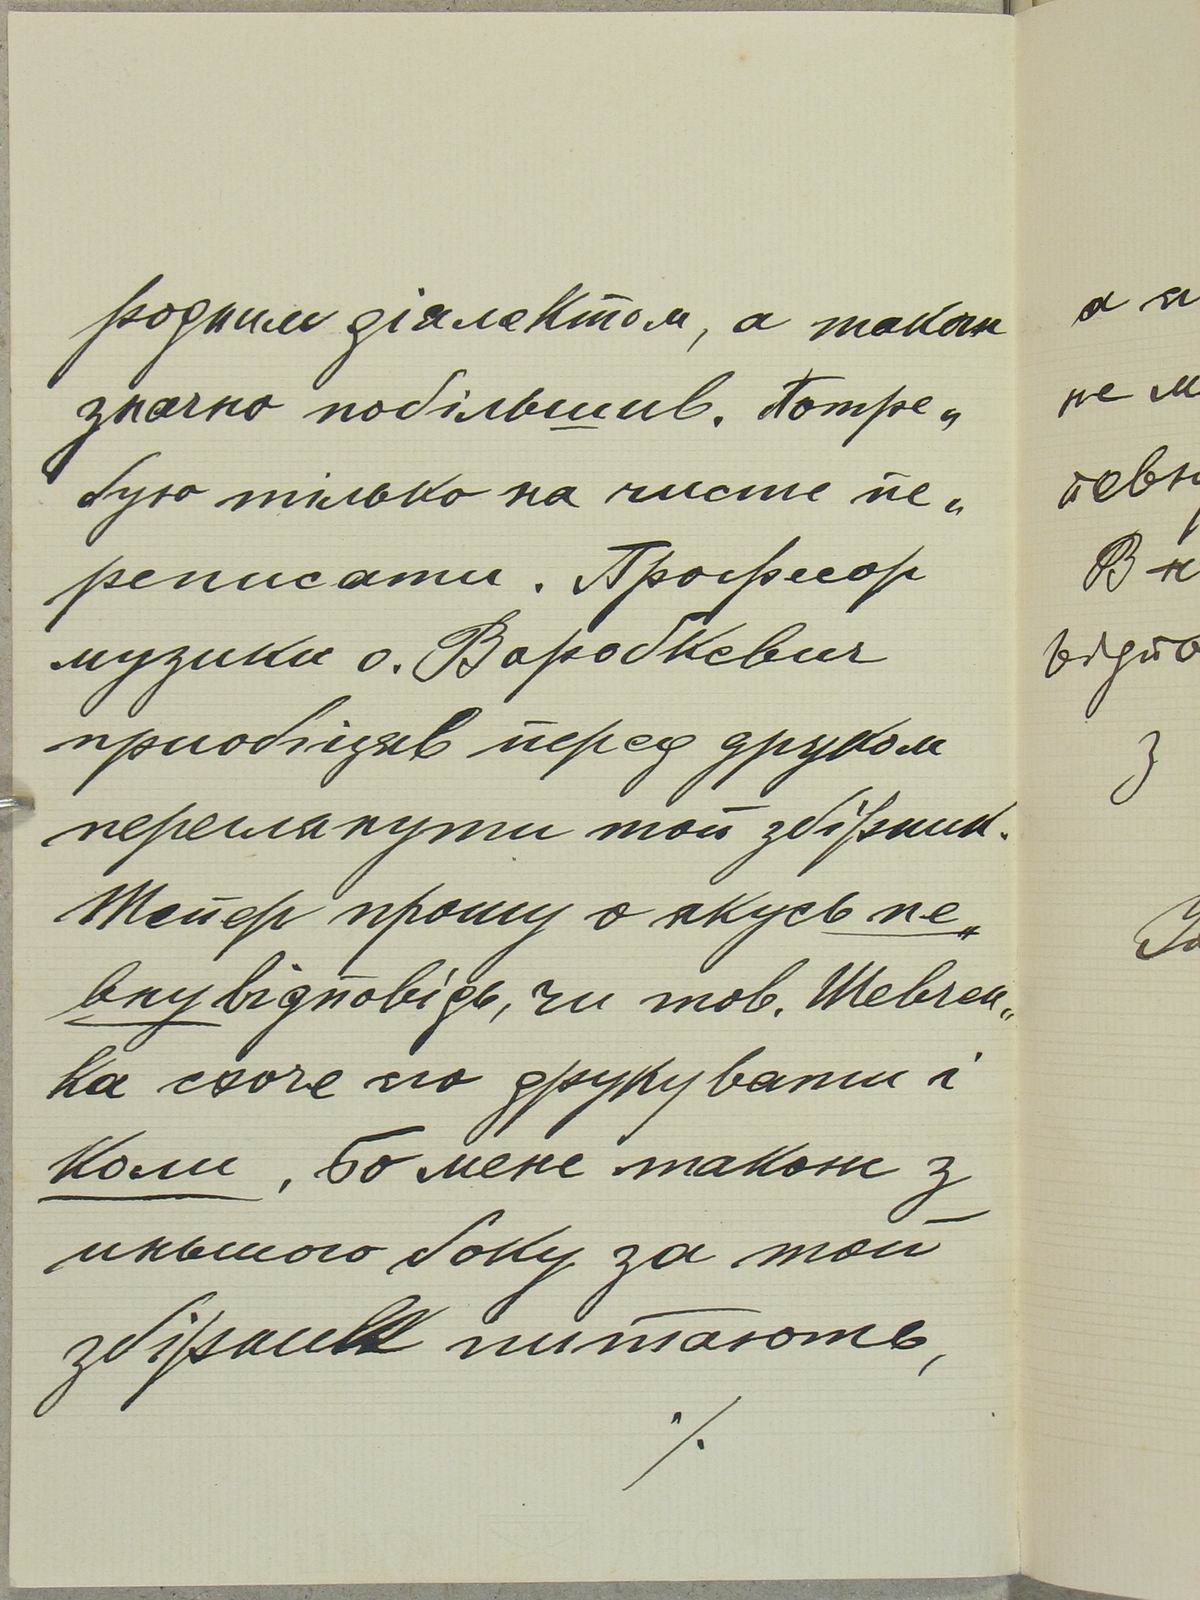 родним діялектом, а також
значно побільшив. Потре„
бую тілько на чисте пе„
реписати. Професор
музики о. Воробкевич
приобіцяв перед друком
переглянути той збірник.
Тепер прошу о якусь пе„
вну відповідь, чи тов. Шевчен„
ка схоче го друкувати і
коли, бо мене також з
иньшого боку за той
збірник питають,
./.
а
не
В
з